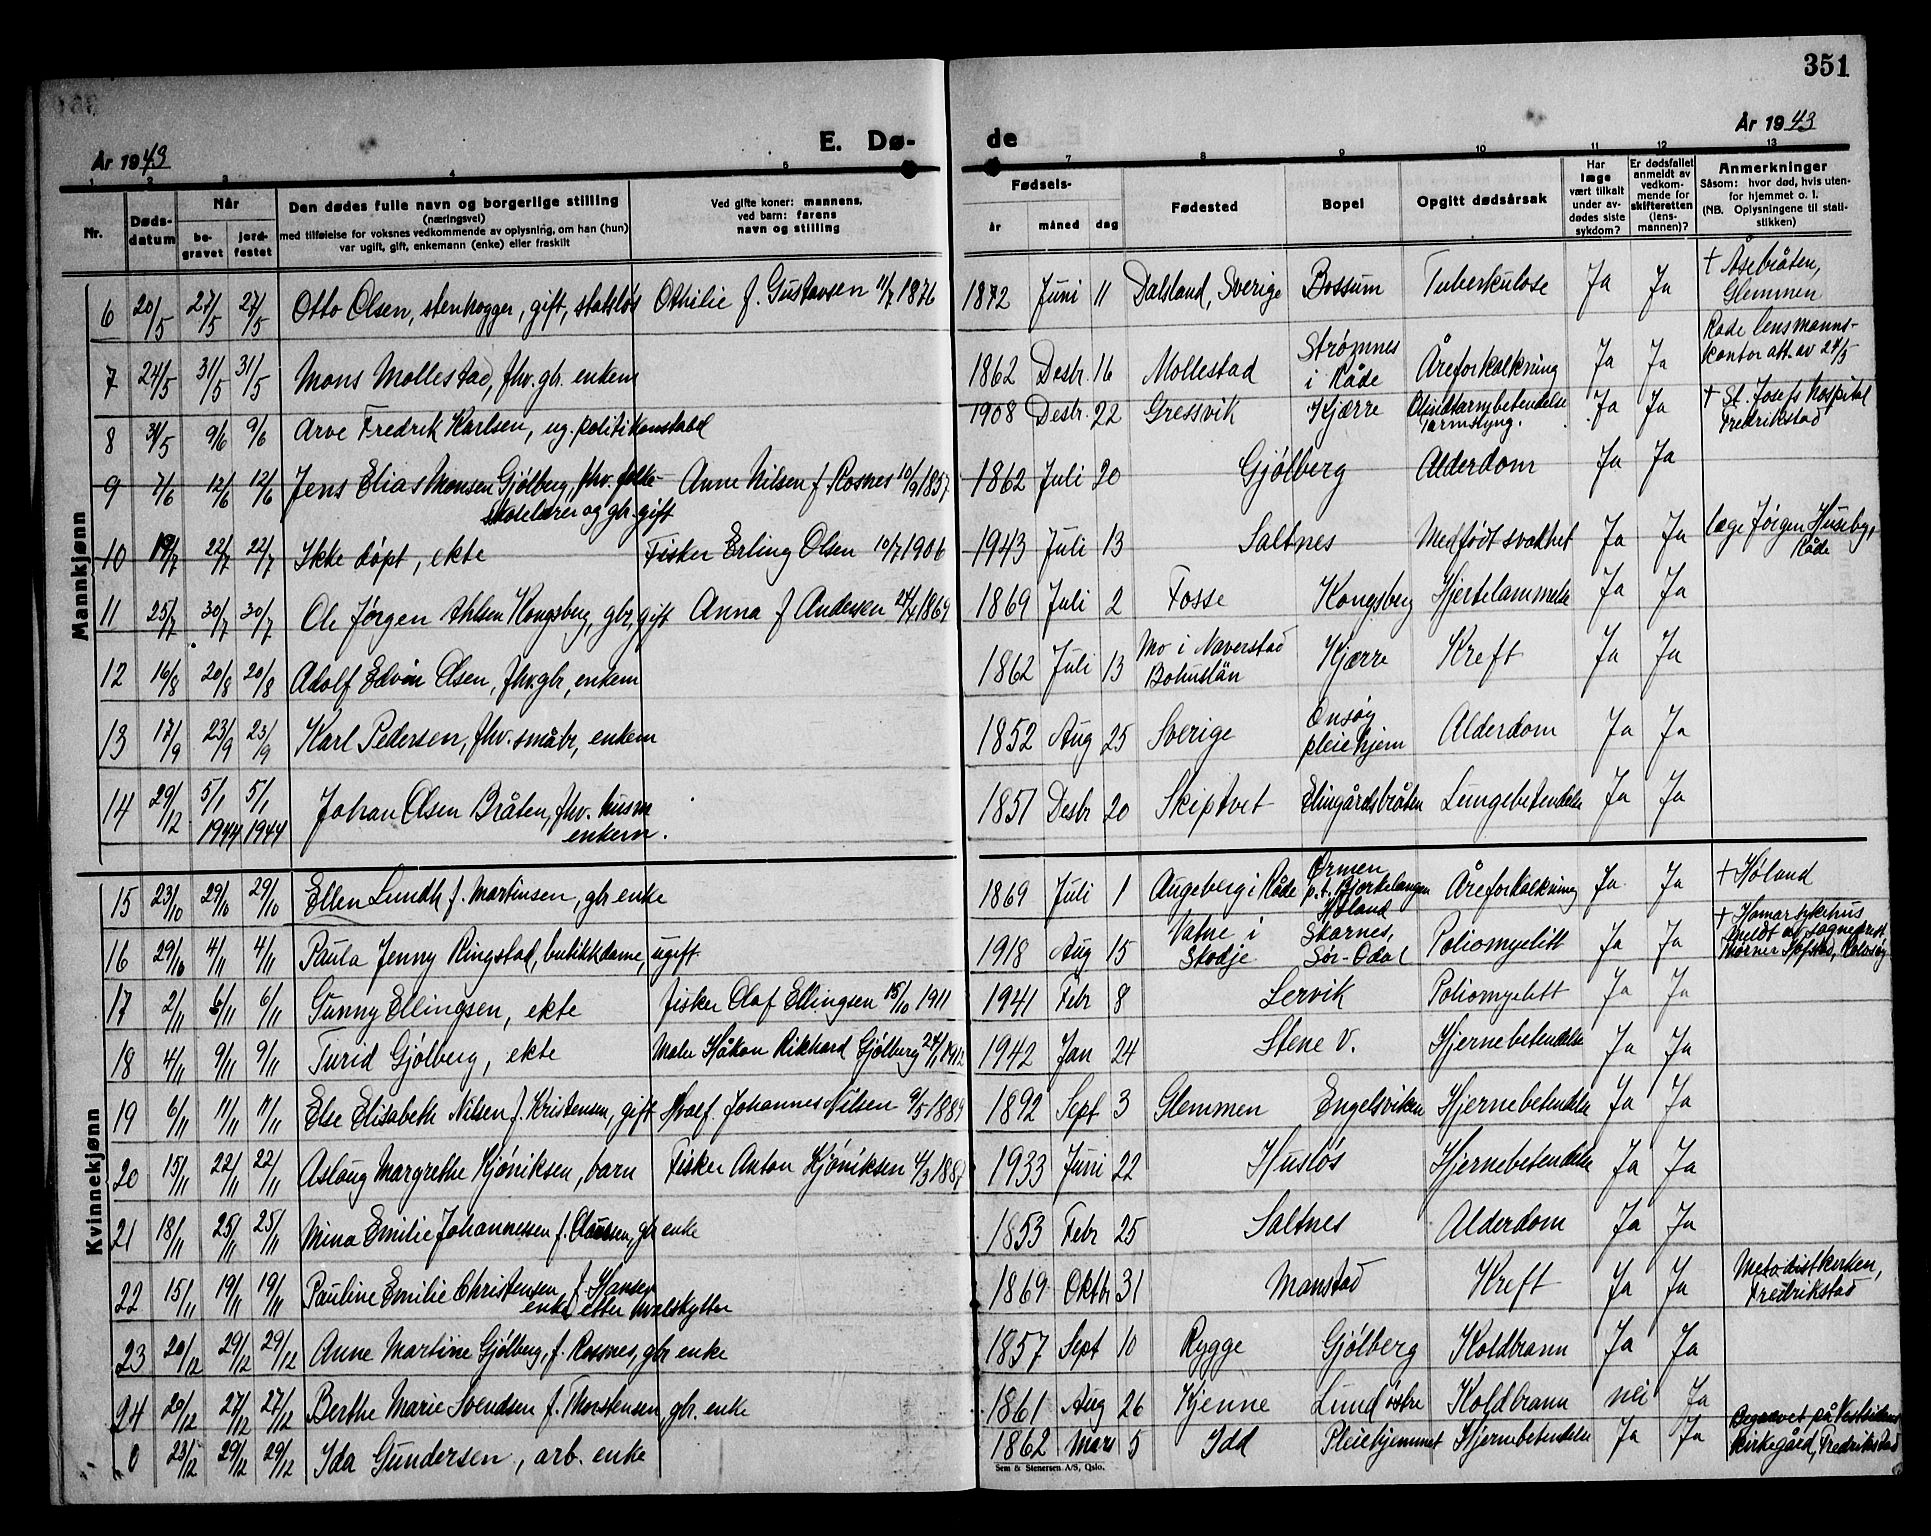 351
År 1943
E. Dø-
de
År 1943
1 2 3 4 5 7 8 9 10 11 12 13
Nr.
Døds-
datum
Når
be-
gravet
jord-
festet
Den dødes fulle navn og borgerlige stilling
(næringsvei)
med tilføielse for voksnes vedkommende av oplysning, om han (hun)
var ugift, gift, enkemann (enke) eller fraskilt
Ved gifte koner: mannens,
ved barn: farens
navn og stilling
Fødsels-
år måned dag
Fødested
Bopel
Opgitt dødsårsak
Har
læge
vært tilkalt
under av-
dødes siste
sykdom?
Er dødsfallet
anmeldt av
vedkom-
mende for
skifteretten
(lens-
mannen)?
Anmerkninger
Såsom: hvor død, hvis uten-
for hjemmet o. l.
(NB. Oplysningene til stati-
stikken)
Mannkjønn
6 20/5 27/5 27/5 Otto Olsen, stenhogger, gift, statsløs Othilie f. Gustavsen 11/7 1876 1872 Juni 11 Dalsland, Sverige Bossum Tuberkulose Ja Ja † Åsebråten,
Glemmen
7 24/5 31/5 31/5 Mons Mollestad, fhv. gbr. enkem 1862 Desbr. 16 Mollestad Strømnes
i Råde Åreforkalkning Ja Ja Råde lensmanns-
kontor att. av 27/5
8 31/5 9/6 9/6 Arve Fredrik Karlsen, ug. politikonstabel 1908 Desbr. 22 Gressvik Kjærre Blindtarmbetendelse
Tarmslyng. Ja Ja † St. Josefs Hospital
Fredrikstad
9 7/6 12/6 12/6 Jens Elias Monsen Gjølberg, fhv. folke-
skolelærer og gbr. gift Anne Nilsen f. Rosnes 10/9 1857 1862 Juli 20 Gjølberg Alderdom Ja Ja
10 19/7 22/7 22/7 Ikke døpt, ekte Fisker Erling Olsen 10/7 1906 1943 Juli 13 Saltnes Medfødt svakhet Ja Ja læge Jørgen Huseby,
Råde
11 25/7 30/7 30/7 Ole Jørgen Ahlsen Kongsberg, gbr, gift Anna f Andersen 1869 1869 Juli 2 Fosse Kongsberg Hjertelammelse Ja Ja
12 16/8 20/8 20/8 Adolf Edvin Olsen, fhv. gbr, enkem 1862 Juli 13 Mo i Naverstad
Bohuslän Kjærre Kreft Ja Ja
13 17/9 23/9 23/9 Karl Pedersen, fhv. småbr, enkem 1852 Aug 25 Sverige Onsøy
pleiehjem Alderdom Ja Ja
14 29/12 5/1
1944 5/1
1944 Johan Olsen Bråten, fhv. husm
enkem. 1851 Desbr 20 Skiptvet Elingårdsbråten Lungebetendelse Ja Ja
Kvinnekjønn
15 23/10 29/10 29/10 Ellen Lundh f. Martinsen, gbr enke 1869 Juli 1 Augeberg i Råde Ørmen
p.t. Bjørkelangen
Høland Åreforkalkning Ja Ja † Høland
16 29/10 4/11 4/11 Paula Jenny Ringstad, butikkdame, ugift 1918 Aug 15 Vatne i
Skodje Skarnes,
Sør-Odal Poliomyelitt Ja Ja † Hamar sykehus
meldt av sogneprest
17 2/11 6/11 6/11 Gunny Ellingsen, ekte Fisker Olaf Ellingsen 15/10 1911 1941 Febr 8 Lervik Poliomyelitt Ja Ja
18 4/11 9/11 9/11 Turid Gjølberg, ekte Maler Håkon Rikhard Gjølberg 24/1 1912 1942 Jan 24 Stene V. Hjernebetendelse Ja Ja
19 6/11 11/11 11/11 Else Elisabeth Nilsen f. Kristensen, gift Hvalf. Johannes Nilsen 9/5 1889 1892 Sept 3 Glemmen Engelsviken Hjernebetendelse Ja Ja
20 15/11 22/11 22/11 Aslaug Margrethe Kjøniksen, barn Fisker Anton Kjøniksen 4/3 1887 1933 Juni 22 Husløs Hjernebetendelse Ja Ja
21 18/11 25/11 25/11 Mina Emilie Johannessen f. Clausen, gbr enke 1853 Febr 25 Saltnes Alderdom Ja Ja
22 15/11 19/11 19/11 Pauline Emilie Christensen f. Hansen
enke etter hvalskytter 1869 Oktbr 31 Manstad Kreft Ja Ja Metodistkirken,
Fredrikstad
23 20/12 29/12 29/12 Anne Martine Gjølberg, f. Rossnes, gbr enke 1857 Sept 10 Rygge Gjølberg Koldbrann Ja Ja
24 20/12 27/12 27/12 Berthe Marie Svendsen f. Thorstensen, gbr. enke 1861 Aug 26 Kjenne Lund østre Koldbrann nei Ja
0 23/12 29/12 29/12 Ida Gundersen, arb. enke 1862 Mars 5 Idd Pleiehjemmet Hjernebetendelse Ja Ja Begravet på Vestsidens
kirkegård, Fredrikstad
Sem & Stenersen A/S, Oslo.